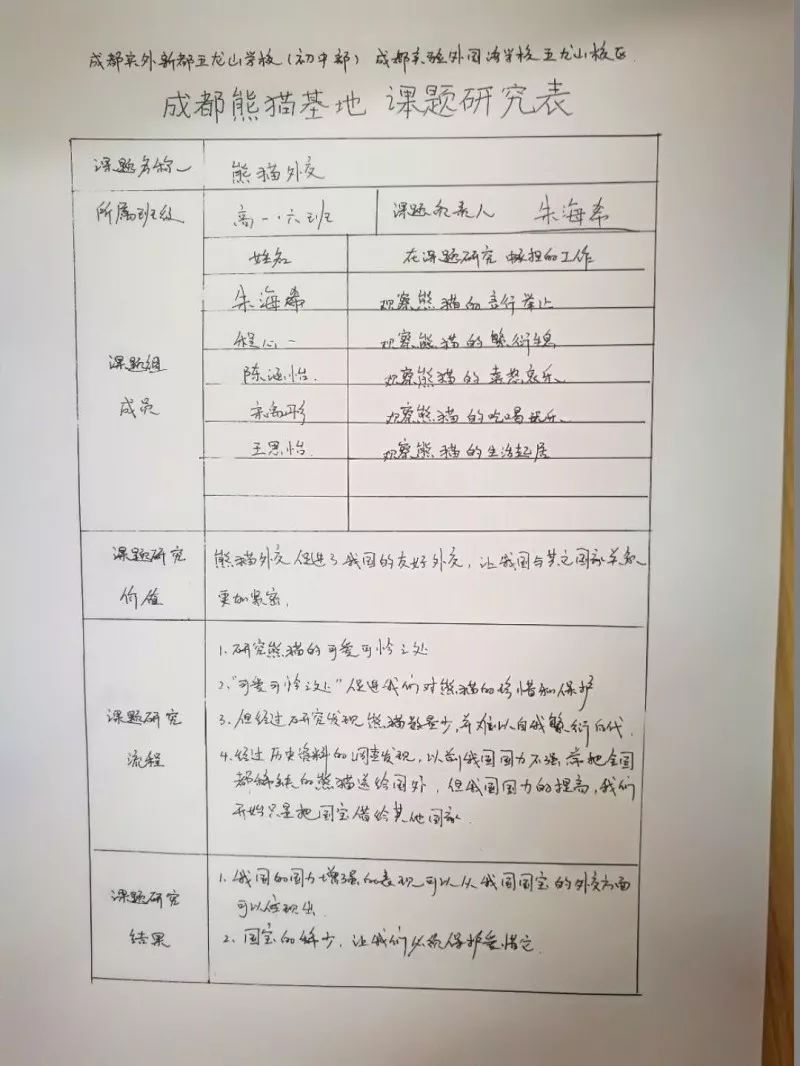 成都实外新都五龙山学校(初中部) 成都实验外国语学校五龙山校区
成都熊猫基地 课题研究表
课题名称 熊猫外交
所属班级 高一.六班 课题负责人 朱海希
姓名 在课题研究中承担的工作
朱海希 观察熊猫的言行举止
程心一 观察熊猫的繁衍生息
课题组 陈涵怡 观察熊猫的喜怒哀乐
成员 观察熊猫的吃喝玩乐
王思怡 观察熊猫的生活起居
课题研究 熊猫外交促进了我国的友好外交,让我国与其它国家关系
价值 更加紧密.
1.研究熊猫的可爱可怜之处
2."可爱可怜之处"促进我们对熊猫的珍惜和保护
课题研究 3.但经过研究发现熊猫数量少,并难以自我繁衍后代.
流程 4.经过历史资料的调查发现,以前我国国力不强,常把全国
都稀缺的熊猫送给国外,但我国国力的提高,我们
开始只是把国宝借给其他国家.
课题研究 1.我国的国力增强的表现可以从我国国宝的外交方面
可以体现出.
结果 2.国宝的稀少,让我们必须保护爱惜它.